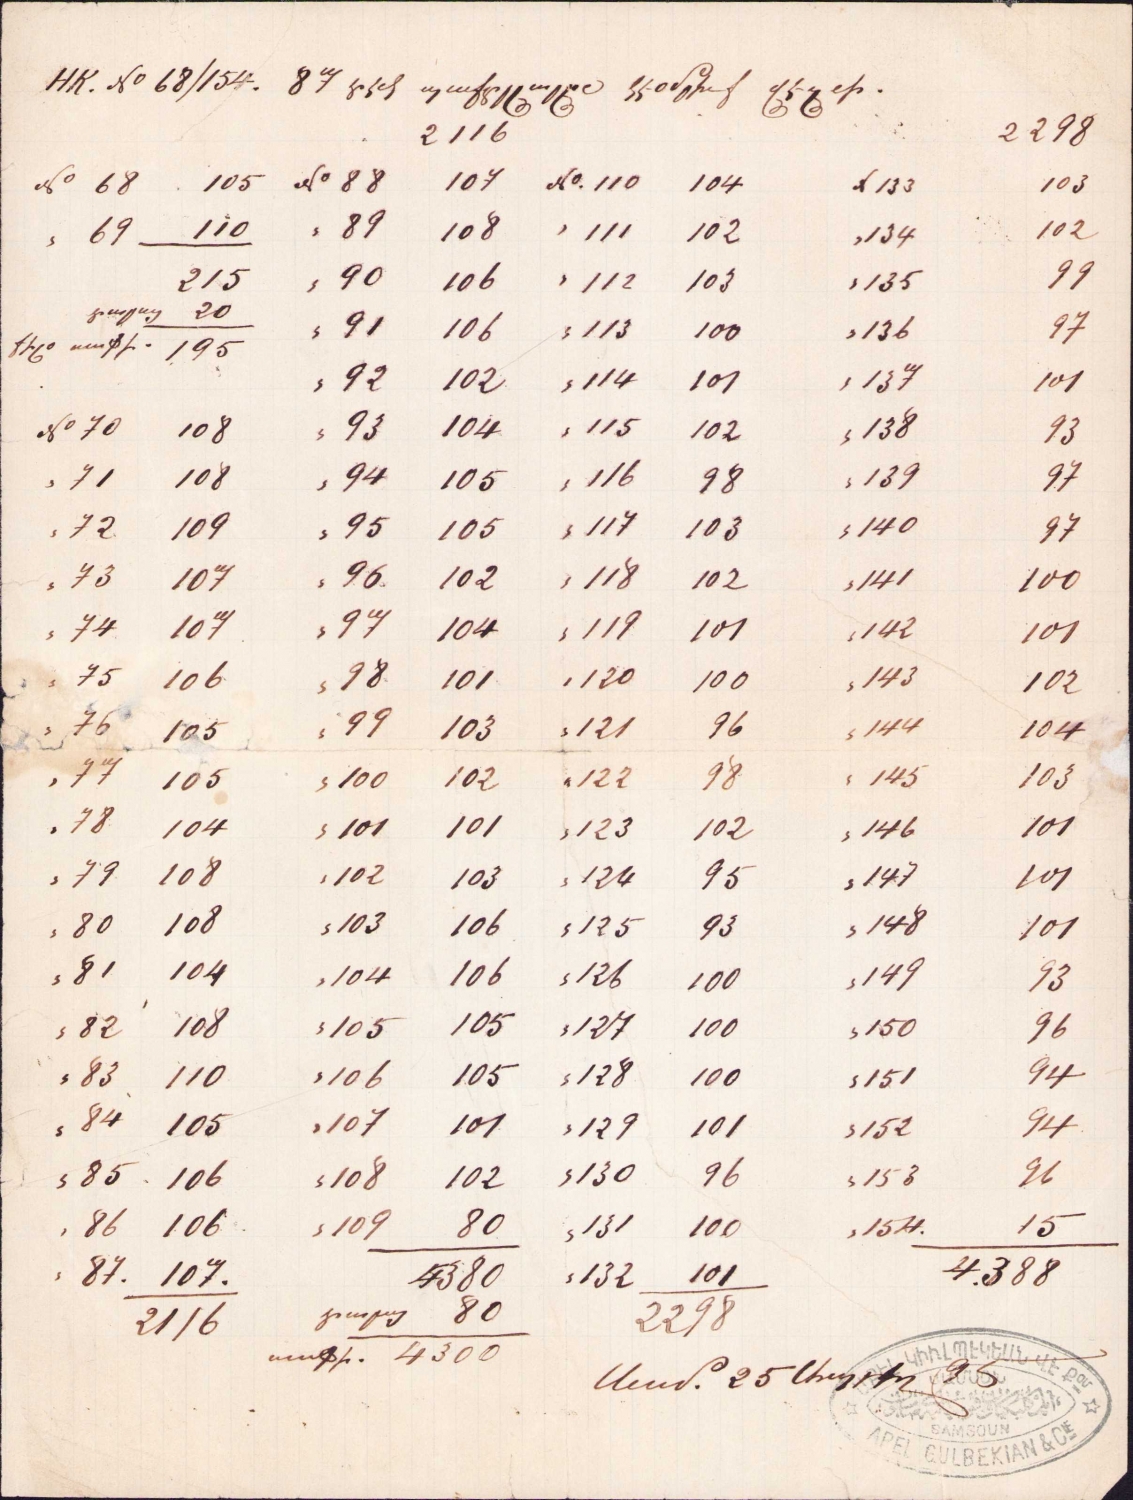 HK. No 68/154. 87
2116 2298
No 68 105 No 88 107 No. 110 104 N 133 103
„ 69 110 „ 89 108 „ 111 102 „ 134 102
215 „ 90 106 „ 112 103 „ 135 99
20 „ 91 106 „ 113 100 „ 136 97
195 „ 92 102 „ 114 101 „ 137 101
No 70 108 „ 93 104 „ 115 102 „ 138 93
„ 71 108 „ 94 105 „ 116 98 „ 139 97
„ 72 109 „ 95 105 „ 117 103 „ 140 97
„ 73 107 „ 96 102 „ 118 102 „ 141 100
„ 74 107 „ 97 104 „ 119 101 „ 142 101
„ 75 106 „ 98 101 „ 120 100 „ 143 102
„ 76 105 „ 99 103 „ 121 96 „ 144 104
„ 77 105 „ 100 102 „ 122 98 „ 145 103
„ 78 104 „ 101 101 „ 123 102 „ 146 101
„ 79 108 „ 102 103 „ 124 95 „ 147 101
„ 80 108 „ 103 106 „ 125 93 „ 148 101
„ 81 104 „ 104 106 „ 126 100 „ 149 93
„ 82 108 „ 105 105 „ 127 100 „ 150 96
„ 83 110 „ 106 105 „ 128 100 „ 151 94
„ 84 105 „ 107 101 „ 129 101 „ 152 94
„ 85 106 „ 108 102 „ 130 96 „ 153 96
„ 86 106 „ 109 80 „ 131 100 „ 154. 15
„ 87. 107. 4380 „ 132 101 4.388
2116 80 2298
4300
Սամ. 25 95
ԱԲԷԼ ԿԻՒԼՊԷԿԵԱՆ ՎԷ ՔԸ
ՍԱՄՍՈՆ
SAMSOUN
APEL GULBEKIAN & CIE